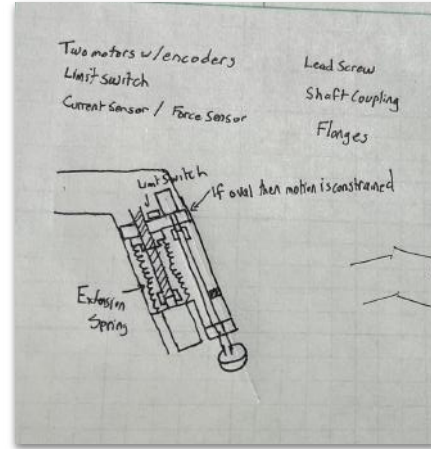 Two motors w/encoders
Limit switch
Current Sensor / Force Sensor
Lead Screw
Shaft Coupling
Flanges
Limit Switch
If oval then motion is constrained
Extension
Spring